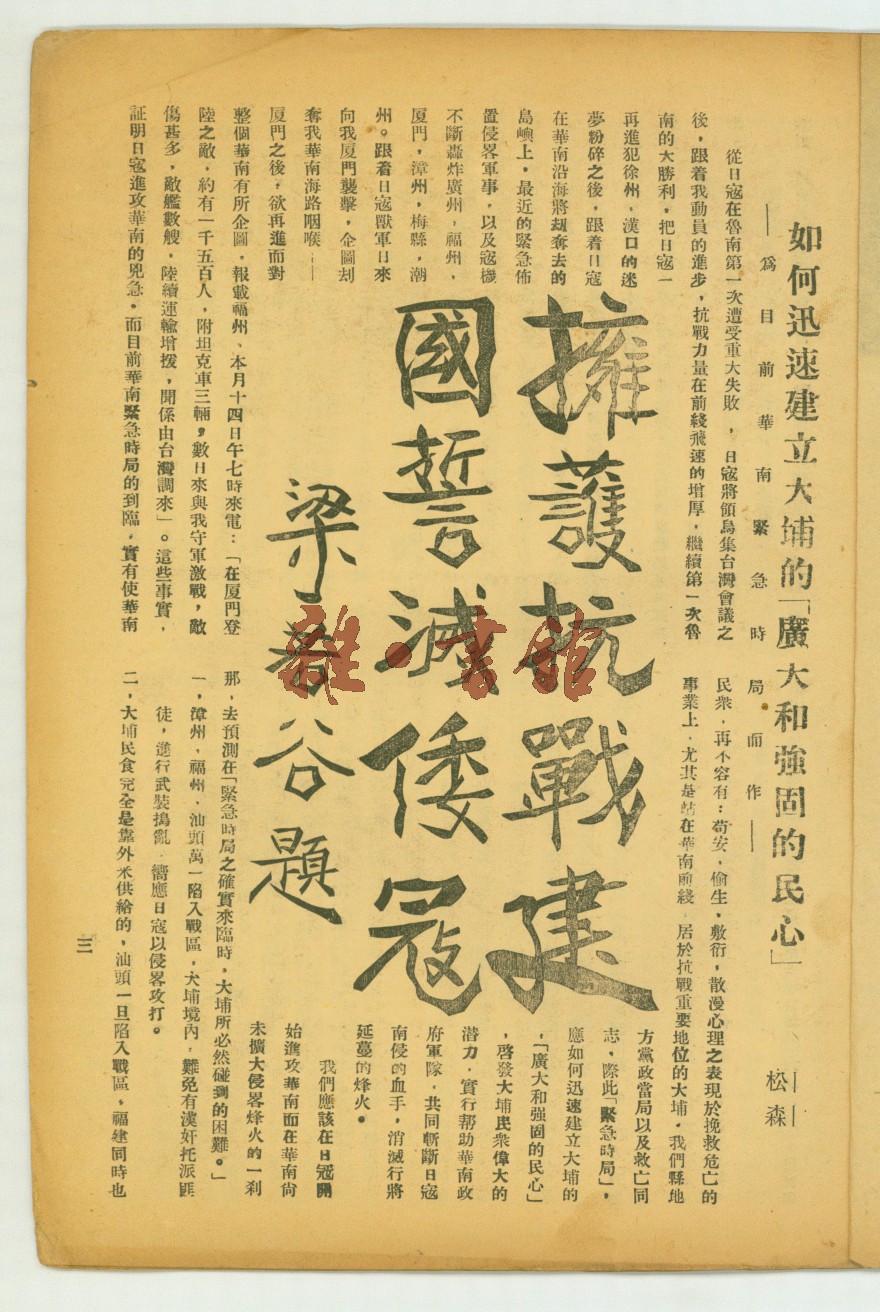 如何迅速建立大埔的「廣大和強固的民心」
——為目前華南緊急時局而作——
松森
從日寇在魯南第一次遭受重大失敗，日寇將領鳥集台灣會議之
後，跟着我動員的進步，抗戰力量在前綫飛速的增厚，繼續第一次魯
南的大勝利，把日寇一
再進犯徐州，漢口的迷
夢粉碎之後，跟着日寇
在華南沿海將刼奪去的
島嶼上，最近的緊急佈
置侵畧軍事，以及寇機
不斷轟炸廣州，福州，
厦門，漳州，梅縣，潮
州。跟着日寇獸軍日來
向我厦門襲擊，企圖刦
奪我華南海路咽喉——
厦門之後，欲再進而對
整個華南有所企圖，報載福州、本月十四日午七時來電：「在厦門登
陸之敵，約有一千五百人，附坦克車三輛，數日來與我守軍激戰，敵
傷甚多，敵艦數艘，陸續運輸增援，聞係由台灣調來」。這些事實，
証明日寇進攻華南的兇急，而目前華南緊急時局的到臨，實有使華南
民衆，再不容有：苟安，偷生，敷衍，散漫心理之表現於挽救危亡的
事業上，尤其是站在華南前綫，居於抗戰重要地位的大埔，我們縣地
方黨政當局以及救亡同
志，際此「緊急時局」，
應如何迅速建立大埔的
「廣大和強固的民心」
，啓發大埔民衆偉大的
潛力，實行帮助華南政
府軍隊，共同斬斷日寇
南侵的血手，消滅行將
延蔓的烽火。
我們應該在日寇開
始進攻華南而在華南尚
未擴大侵畧烽火的一刹
那，去預測在「緊急時局之確實來臨時，大埔所必然碰到的困難。」
一，漳州，福州，汕頭萬一陷入戰區，大埔境內，難免有漢奸托派匪
徒，進行武裝搗亂，嚮應日寇以侵畧攻打。
二，大埔民食完全是靠外米供給的，汕頭一旦陷入戰區，福建同時也
擁護抗戰建
國誓滅倭寇
梁谷題
三
雜·書館